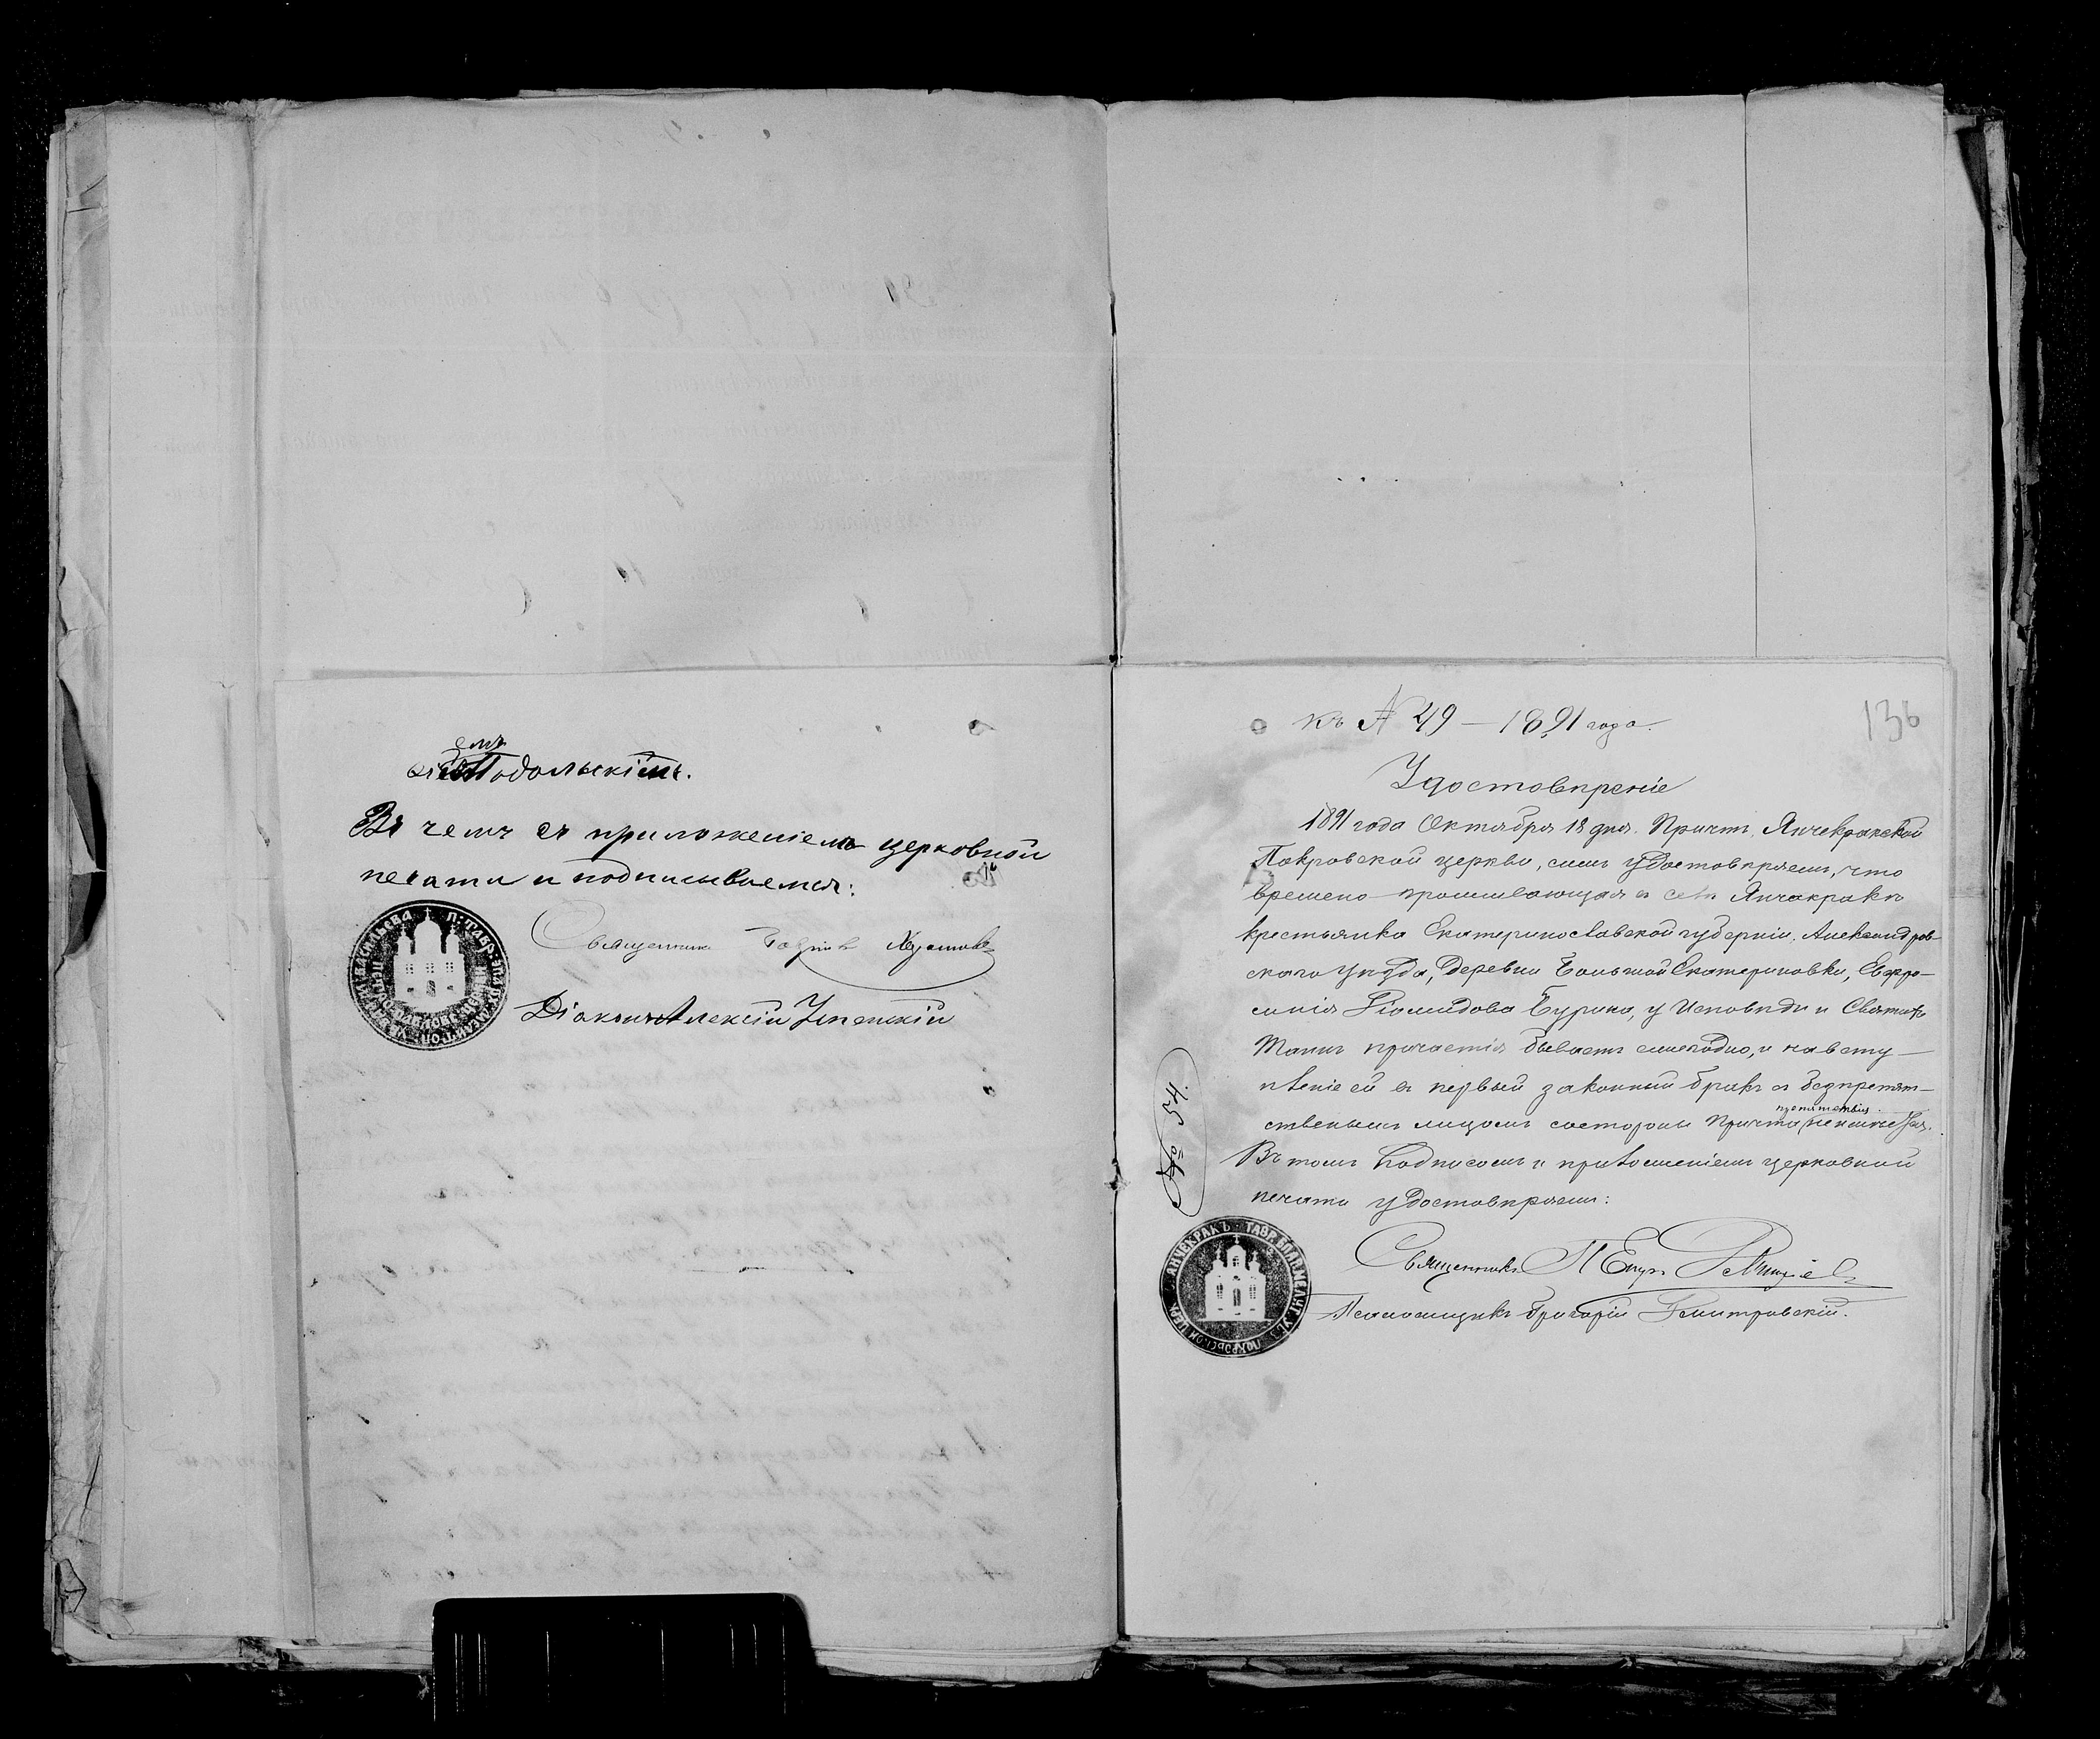 емъ
Подольскимъ.
Въ чемъ съ приложеніемъ церковной
печати и подписываемся:
Священникъ
Діаконъ Алексій Успенскій
136
къ № 49 — 1891 года.
Удостовѣреніе
1891 года Октября 18 дня. Причтъ Янчекракской
Покровской церкви, симъ удостовѣряемъ, что
времено проживающая въ селѣ Янчакракѣ
крестьянка Екатеринославской губерніи, Александров-
скаго уѣзда, Деревни Большой Екатериновки, Евфро-
синія Діомидова Бурика, у Исповѣди и Святыхъ
Таинъ причастія бываетъ ежегодно, и на всту-
пленіе ей въ первый законный бракъ съ безпрепят-
ственымъ лицомъ состороны Причта препятствія неимѣется.
Въ томъ подписомъ и приложеніемъ церковной
печати удостовѣряемъ:
№ 54.
Священникъ Петръ
Псаломщикъ Григорій Дмитровскій.
ЯНЧЕКРАКЪ ТАВР. ЕПАР. МЕЛИТ. УѢЗ. ПОКРОВСКОЙ ЦЕРК.